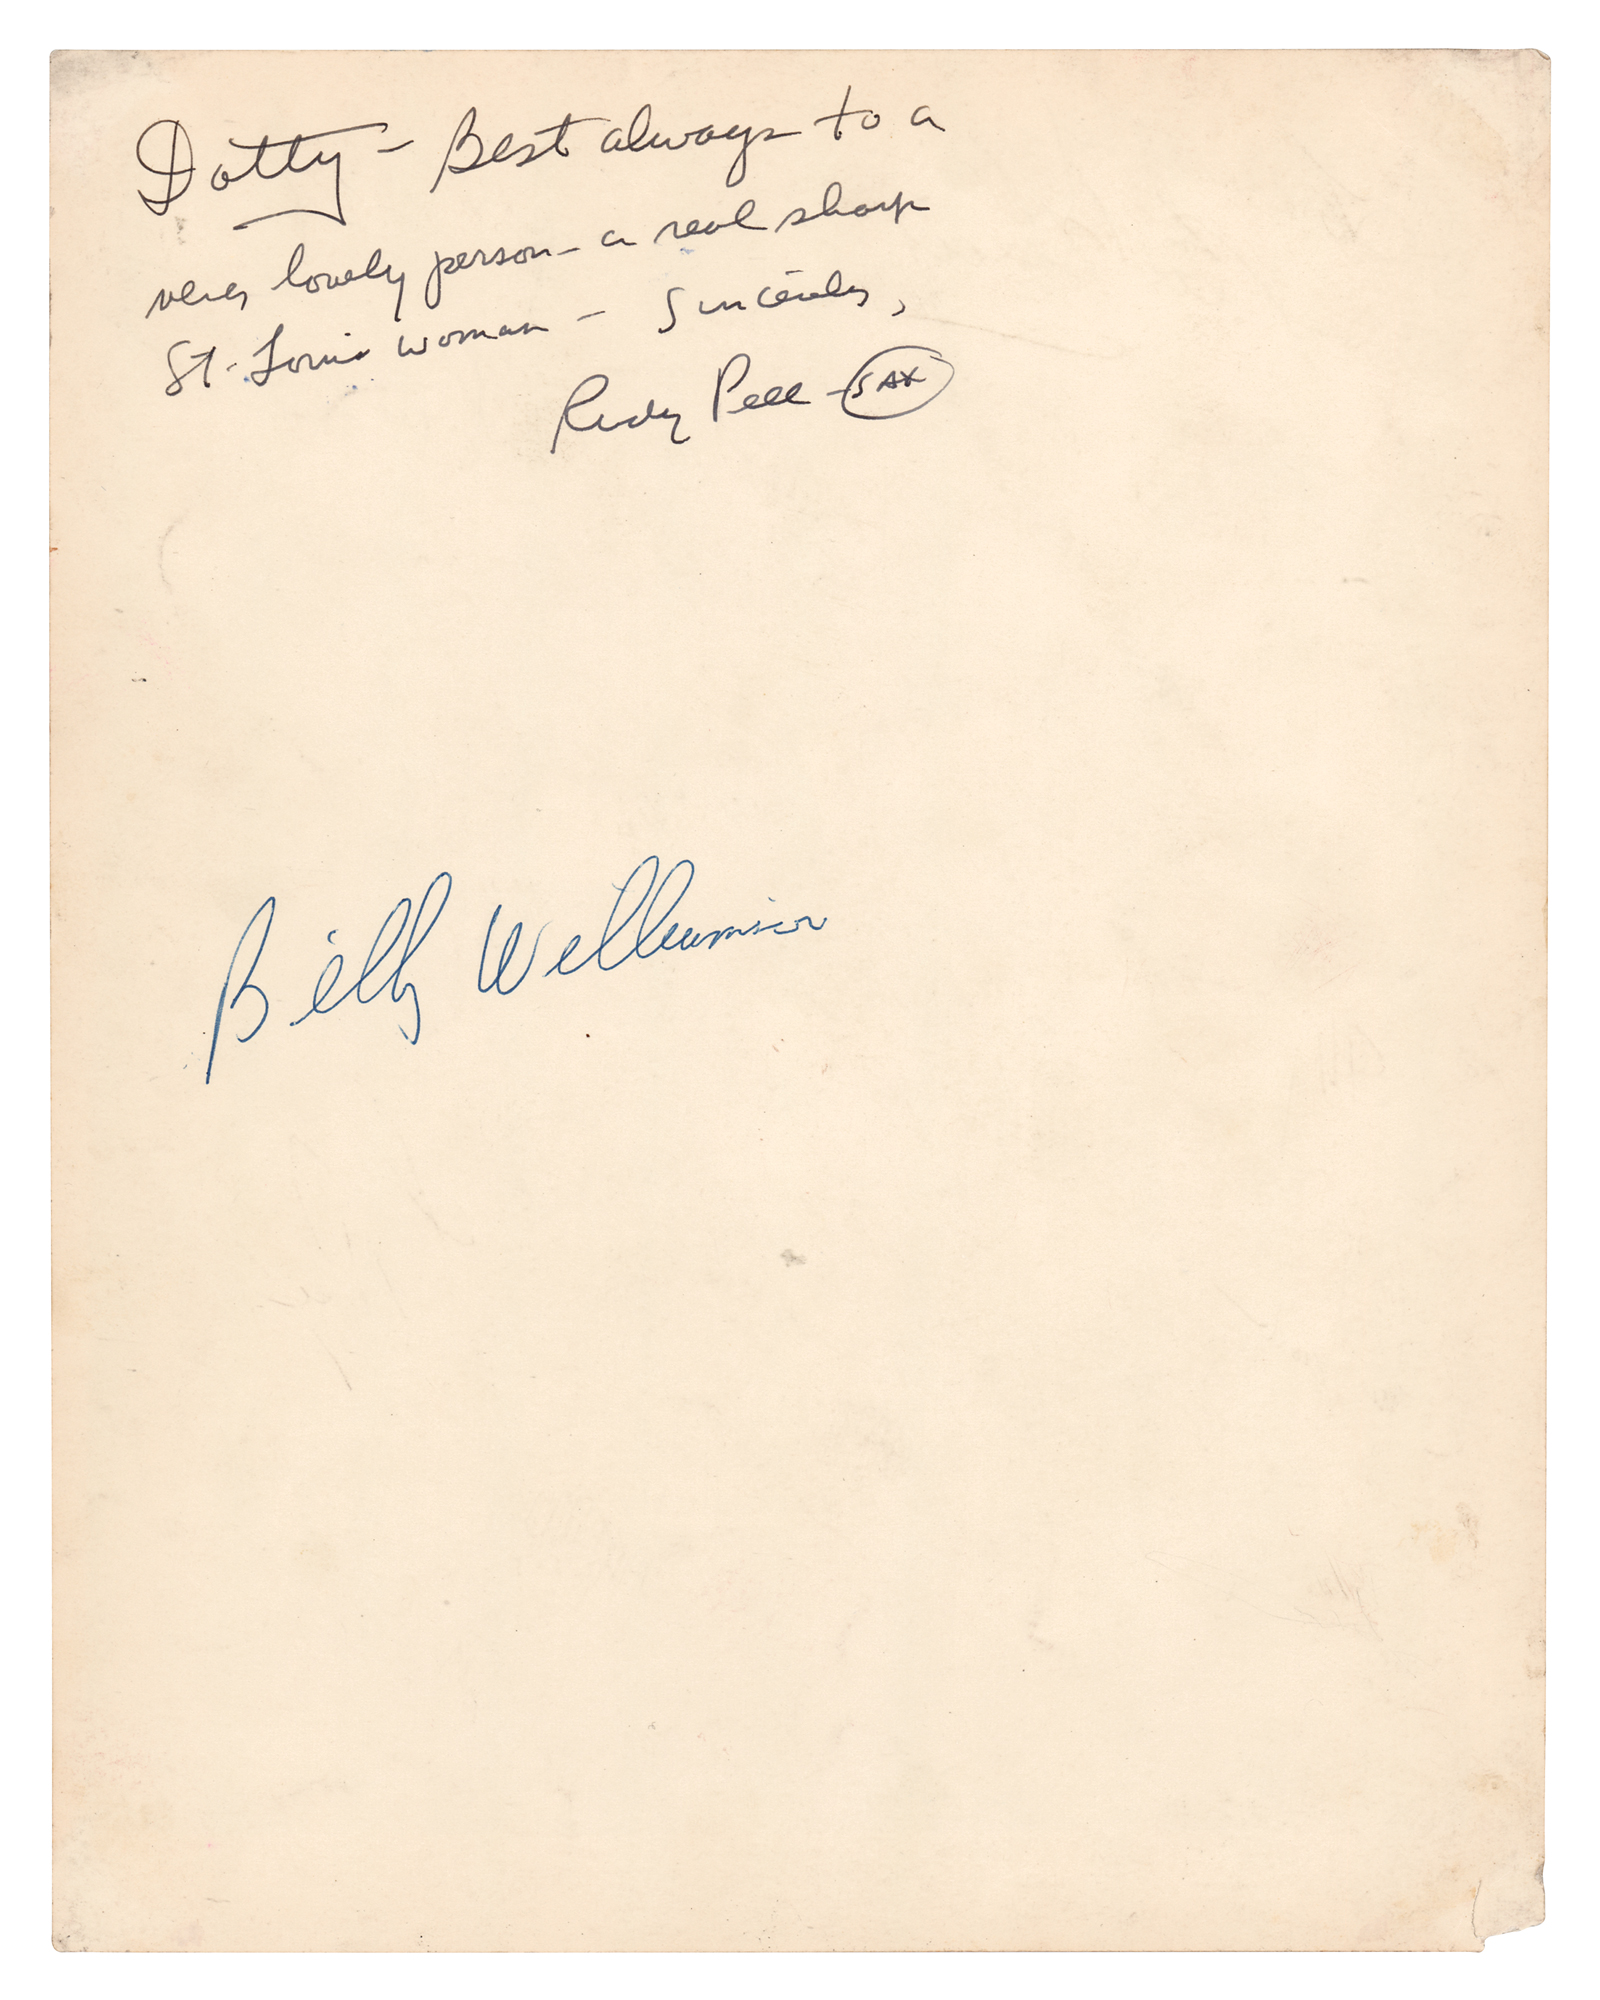 Dotty - Best always to a
very lovely person - a real sharp
St. Louis woman - Sincerely,
Rudy Pell - SAX
Billy Williamson